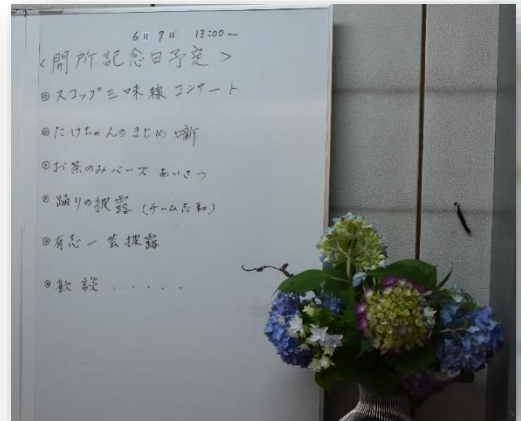 6月7日 13:00〜
<開所記念日予定>
◎スコップ三味線コンサート
◎たけちゃんのまじめ噺
◎お茶のみバーズ あいさつ
◎踊りの披露 (チーム志和)
◎有志一芸披露
◎歓談......